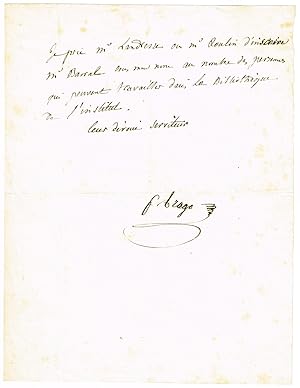 Je prie Mr Landresse ou Mr Roulin d'inscrire
Mr Barral sous mon nom au nombre des personnes
qui peuvent travailler dans la Bibliothèque
de l'institut.
leur dévoué serviteur
f. Arago